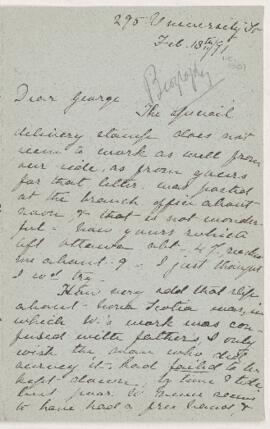 295 University St
Feb. 18th/91
Biography
Dear George
The special
delivery stamp does not
seem to work as well from
our side, as from yours
for that letter was posted
at the branch office about
noon & that is not wonder
ful - how yours which
left Ottawa abt - 4.7. reached
me about 9 - I just thought
I wd try
How very odd that slip
about Nova Scotia was, in
which W's work was con-
fused with father's, I only
wish the man who did
survey it had failed to be
kept down by time &
poor W never seems
to have had a free hand &